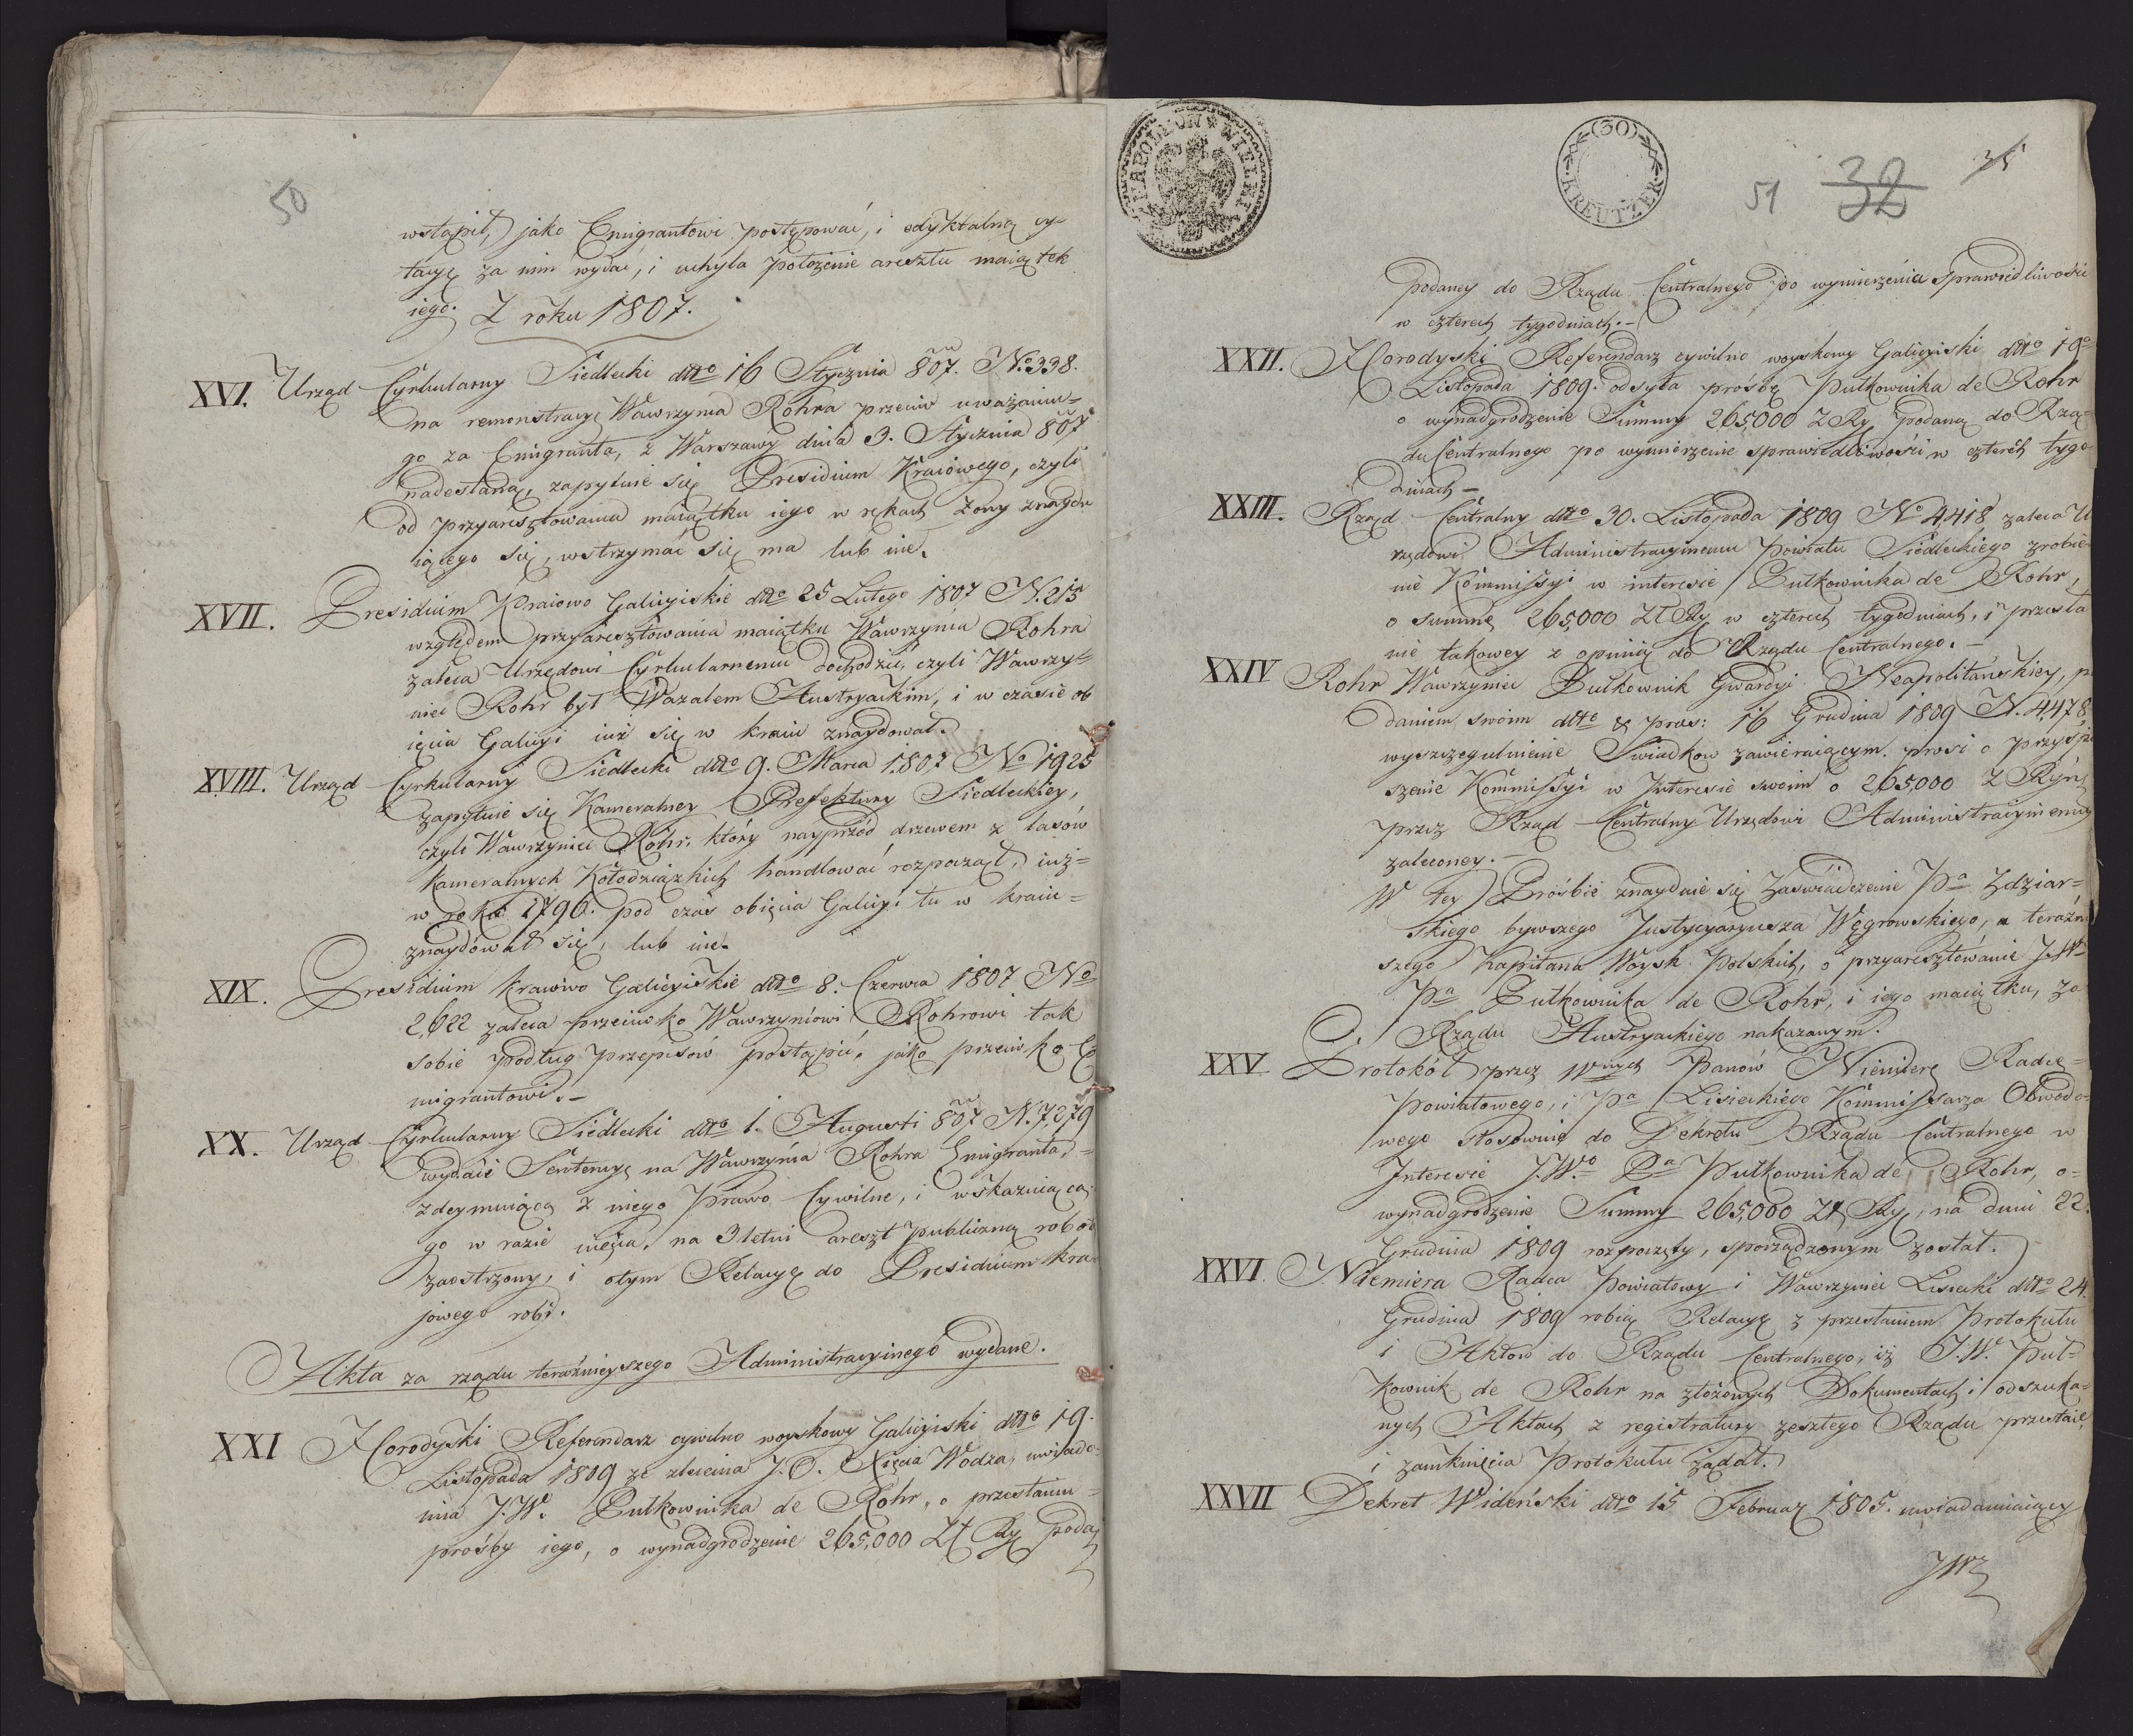 50
wstąpił, jako Emigrantowi postępować, i edyktalną cy-
tacyę za nim wydać, i uchyla położenie aresztu maiątek
iego. Z roku 1807.
XVI. Urząd Cyrkularny Siedlecki dtto 16 Stycznia 807. No 338.
na remonstracyę Wawrzyna Rohra przeciw uważaniu=
go za Emigranta, z Warszawy dnia 3. Stycznia 807
nadesłaną, zapytuie się Presidium Kraiowego, czyli
od przyaresztowania maiątku iego w rękach Żony znaydu
iącego się, wstrzymać się ma lub nie.
XVII. Presidium Kraiowo Galicyiskie dtto 25 Lutego 1807 N. 215
względem przyaresztowania maiątku Wawrzyna Rohra
zaleca Urzędowi Cyrkularnemu dochodzić, czyli Wawrzy-
niec Rohr był Wazalem Austryackim, i w czasie ob
ięcia Galicyi iuż się w kraiu znaydował.
XVIII. Urząd Cyrkularny Siedlecki dtto 9. Marca 1807 No 1925
zapytuie się Kameralney Prefektury Siedleckiey,
czyli Wawrzyniec Rohr, który nayprzód drzewem z lasów
Kameralnych Kołodziązkich handlować rozpoczął, iuż=
w roku 1796. pod czas obięcia Galicyi tu w kraiu=
znaydował się, lub nie.
XIX. Presidium kraiowo Galicyiskie dtto 8. Czerwca 1807 No
2,622 zaleca przeciwko Wawrzyńowi Rohrowi tak
sobie podług przepisów postąpić, jako przeciwko E
migrantowi.-
XX. Urząd Cyrkularny Siedlecki dtto 1. Augusti 807 N. 7,279
wydaie Sentencyę na Wawrzyna Rohra Emigranta,=
zdeymuiącą z niego Prawo Cywilne, i wskazuiącą
go w razie uięcia, na 3 letni areszt publiczną robo
zaostrzony, i o tym Relacyę do Presidium kra
jowego robi.
Akta za rządu teraźnieyszego Administracyinego wydane.
XXI Horodyski Referendarz cywilno woyskowy Galicyiski dtto 19.
Listopada 1809 ze zlecenia J. O. Xięcia Wodza, uwiado-
mia J.W. Pułkownika de Rohr, o przesłaniu=
prośby iego, o wynadgrodzenie 265,000 Zł Ry poda
(30)
KREUTZER
NAPOLEON WIELKI
51 32 35
podaney do Rządu Centralnego po wymierzenia sprawiedliwości
w czterech tygodniach.-
XXII. Horodyski Referendarz cywilno woyskowy Galicyiski dtto 19
Listopada 1809. odsyła prośbę Pułkownika de Rohr
o wynadgrodzenie Summy 265,000 Z Ry podaną do Rzą=
du Centralnego po wymierzenie sprawiedliwości w czterech tygo
dniach-
XXIII. Rząd Centralny dtto 30. Listopada 1809 No 4,418 zaleca U
rzędowi Administracyinemu Powiatu Siedleckiego zrobie
nie Kommissyi w interesie Pułkownika de Rohr,
o summę 265,000 Zł Ry w czterech tygodniach, i przesła
nie takowey z opinią do Rządu Centralnego.-
XXIV Rohr Wawrzyniec Pułkownik Gwardyi Neapolitańskiey, p
daniem swoim dtto & pras: 16 Grudnia 1809 N. 4,478,
wyszczegulnienie Swiadkow zawieraiącym prosi o przyspi
szenie Kommissyi w Interesie swoim o 265,000 Z Ryń,
przez Rząd Centralny Urzędowi Administracyinemu
zaleconey.-
W tey Prośbie znayduie się Zaświadczenie Pa Zdziar=
skiego bywszego Justycyaryusza Węgrowskiego, a teraźni
szego Kapitana Woysk Polskich, o przyaresztowanie J.W
Pa Pułkownika de Rohr, i iego maiątku, za
Rządu Austryackiego nakazanym.
XXV. Protokół przez Wnych Panów Niemierę Radcę=
Powiatowego, i Pa Lisieckiego Kommissarza Obwodo-
wego stosownie do Dekretu Rządu Centralnego w
Interesie J.Wo Pa Pułkownika de Rohr, o=
wynadgrodzenie Summy 265,000 Zł Ry, na dniu 22.
Grudnia 1809 rozpoczęty, sporządzonym został.
XXVI. Niemiera Radca Powiatowy i Wawrzyniec Lisiecki dtto 24.
Grudnia 1809 robią Relacyę z przesłaniem Protokułu
i Aktow do Rządu Centralnego, iż J.W. Puł=
kownik de Rohr na złożonych Dokumentach i odszuka=
nych Aktach z registratury zeszłego Rządu przestaie
i zamknięcia Protokułu żądał.
XXVII Dekret Wideński dtto 15 Februar 1805. uwiadamiaiący